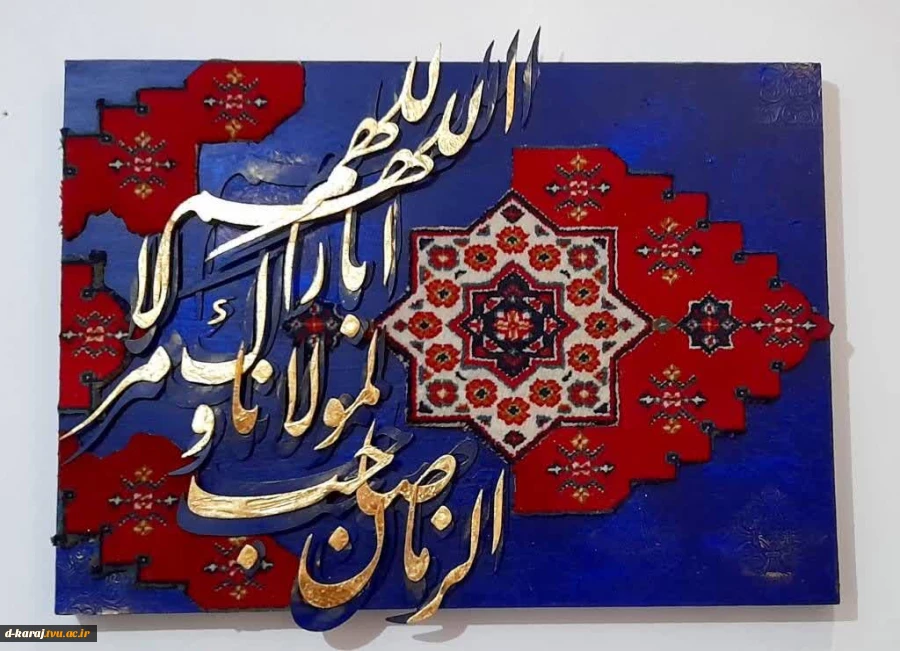 اللهم
بارك
لمولانا و
صاحب
الزمان
d-karaj.tvu.ac.ir